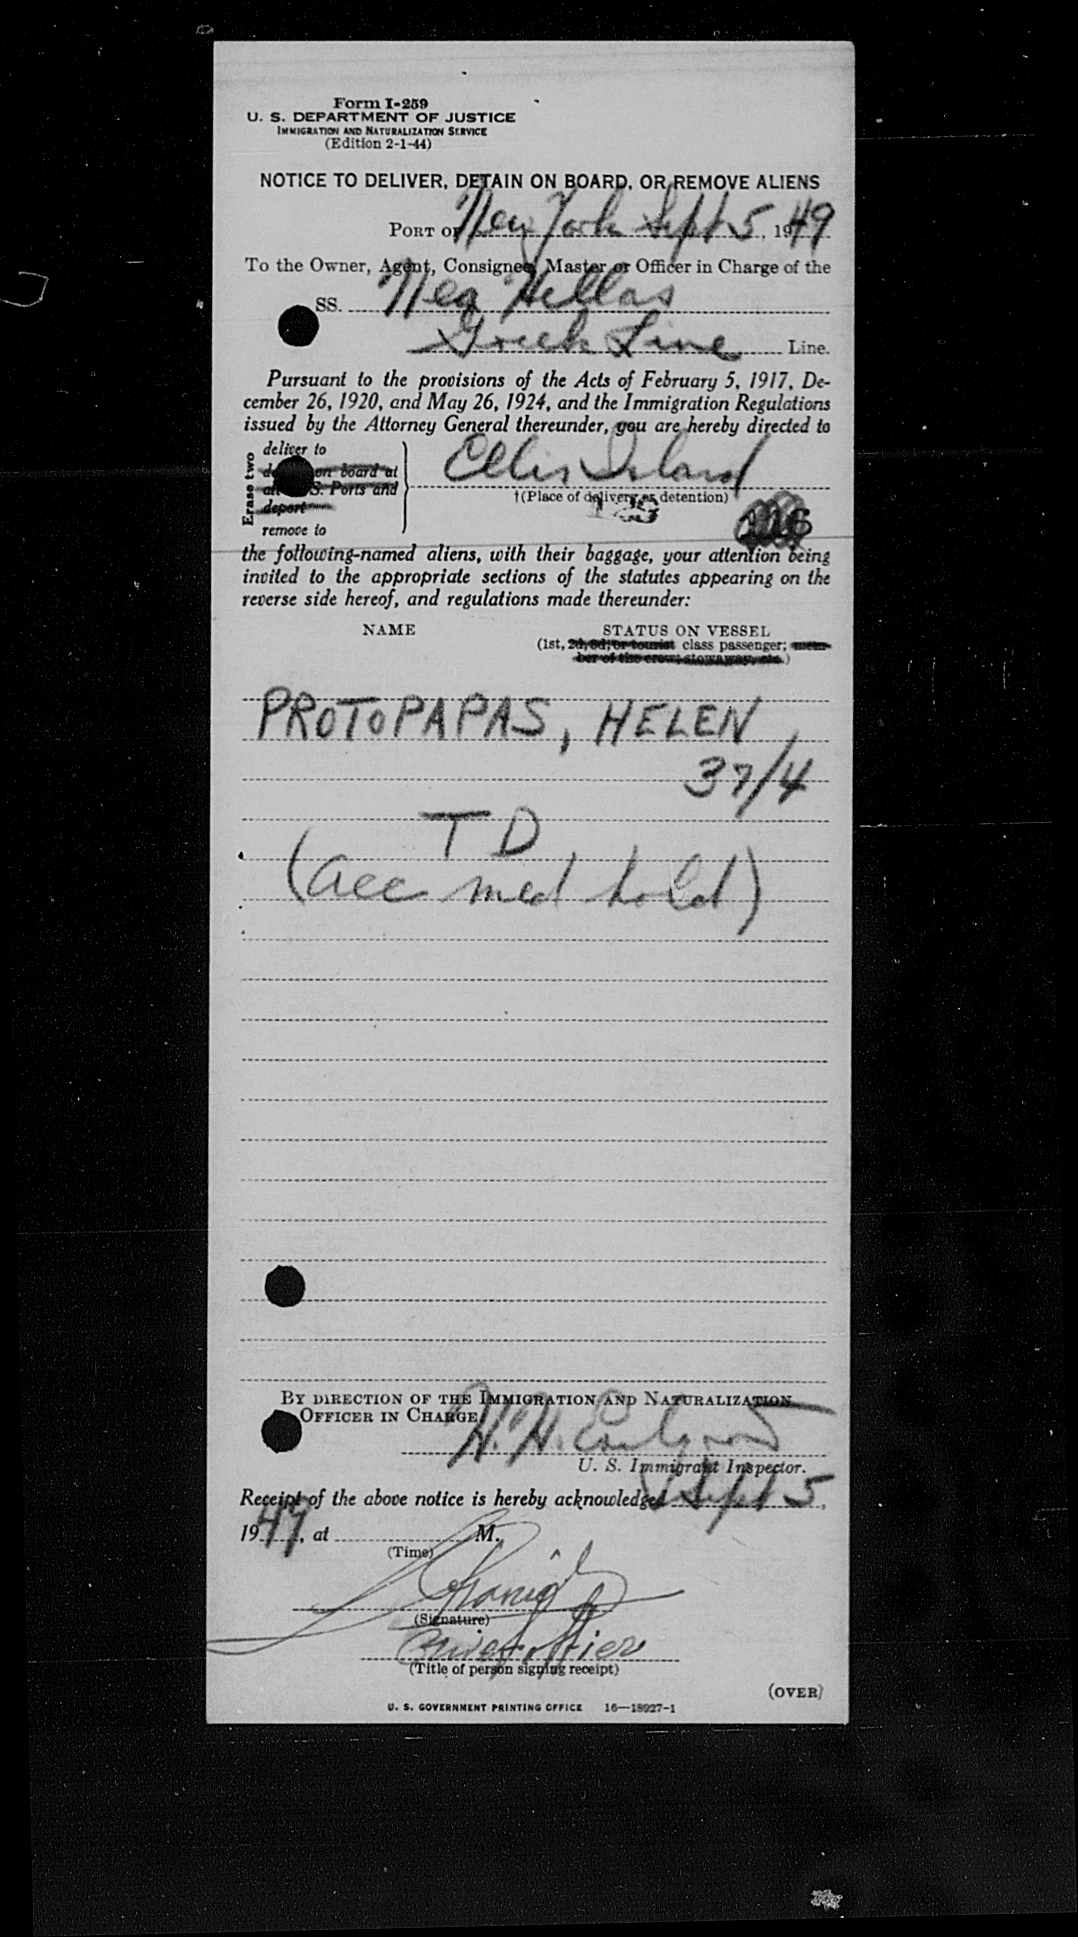 Form I-259
U. S. DEPARTMENT OF JUSTICE
IMMIGRATION AND NATURALIZATION SERVICE
(Edition 2-1-44)
NOTICE TO DELIVER, DETAIN ON BOARD, OR REMOVE ALIENS
PORT OF New York Sept 5, 1949
To the Owner, Agent, Consignee, Master or Officer in Charge of the
SS. Nea Hellas
Greek Line Line.
Pursuant to the provisions of the Acts of February 5, 1917, De-
cember 26, 1920, and May 26, 1924, and the Immigration Regulations
issued by the Attorney General thereunder, you are hereby directed to
Erase two
deliver to
on board at
S. Ports and
deport
remove to
Ellis Island
†(Place of delivery or detention)
the following-named aliens, with their baggage, your attention being
invited to the appropriate sections of the statutes appearing on the
reverse side hereof, and regulations made thereunder:
NAME STATUS ON VESSEL
(1st, 2d, 3d, or tourist class passenger; mem-
ber of the crew, stowaway, etc.)
PROTOPAPAS, HELEN,
37/4
T D
(acc med hold)
BY DIRECTION OF THE IMMIGRATION AND NATURALIZATION
OFFICER IN CHARGE
H. H.
U. S. Immigrant Inspector.
Receipt of the above notice is hereby acknowledged Sept 5,
1949, at M.
(Time)
(Signature)
(Title of person signing receipt)
(OVER)
U. S. GOVERNMENT PRINTING OFFICE 16—18927-1